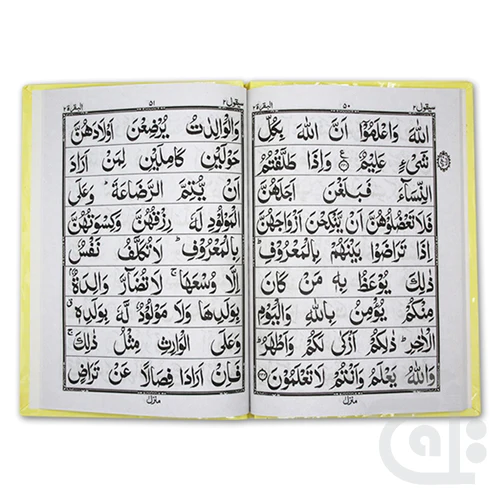 سيقول ٢ ٥٠ البقرة ٢
اللهَ وَاعْلَمُوْۤا اَنَّ اللهَ بِكُلِّ
شَيْءٍ عَلِيْمٌ ع وَاِذَا طَلَّقْتُمُ
النِّسَآءَ فَبَلَغْنَ اَجَلَهُنَّ
فَلَا تَعْضُلُوْهُنَّ اَنْ يَّنْكِحْنَ اَزْوَاجَهُنَّ
اِذَا تَرَاضَوْا بَيْنَهُمْ بِالْمَعْرُوْفِ ؕ
ذٰلِكَ يُوْعَظُ بِهٖ مَنْ كَانَ
مِنْكُمْ يُؤْمِنُ بِاللهِ وَالْيَوْمِ
الْاٰخِرِ ؕ ذٰلِكُمْ اَزْكٰى لَكُمْ وَاَطْهَرُ ؕ
وَاللهُ يَعْلَمُ وَاَنْتُمْ لَا تَعْلَمُوْنَ
منزل
سيقول ٢ ٥١ البقرة ٢
وَالْوَالِدٰتُ يُرْضِعْنَ اَوْلَادَهُنَّ
حَوْلَيْنِ كَامِلَيْنِ لِمَنْ اَرَادَ
اَنْ يُّتِمَّ الرَّضَاعَةَ ؕ وَعَلَى
الْمَوْلُوْدِ لَهٗ رِزْقُهُنَّ وَكِسْوَتُهُنَّ
بِالْمَعْرُوْفِ ؕ لَا تُكَلَّفُ نَفْسٌ
اِلَّا وُسْعَهَا ۚ لَا تُضَآرَّ وَالِدَةٌۢ
بِوَلَدِهَا وَلَا مَوْلُوْدٌ لَّهٗ بِوَلَدِهٖ ۗ
وَعَلَى الْوَارِثِ مِثْلُ ذٰلِكَ ۚ
فَاِنْ اَرَادَا فِصَالًا عَنْ تَرَاضٍ
منزل